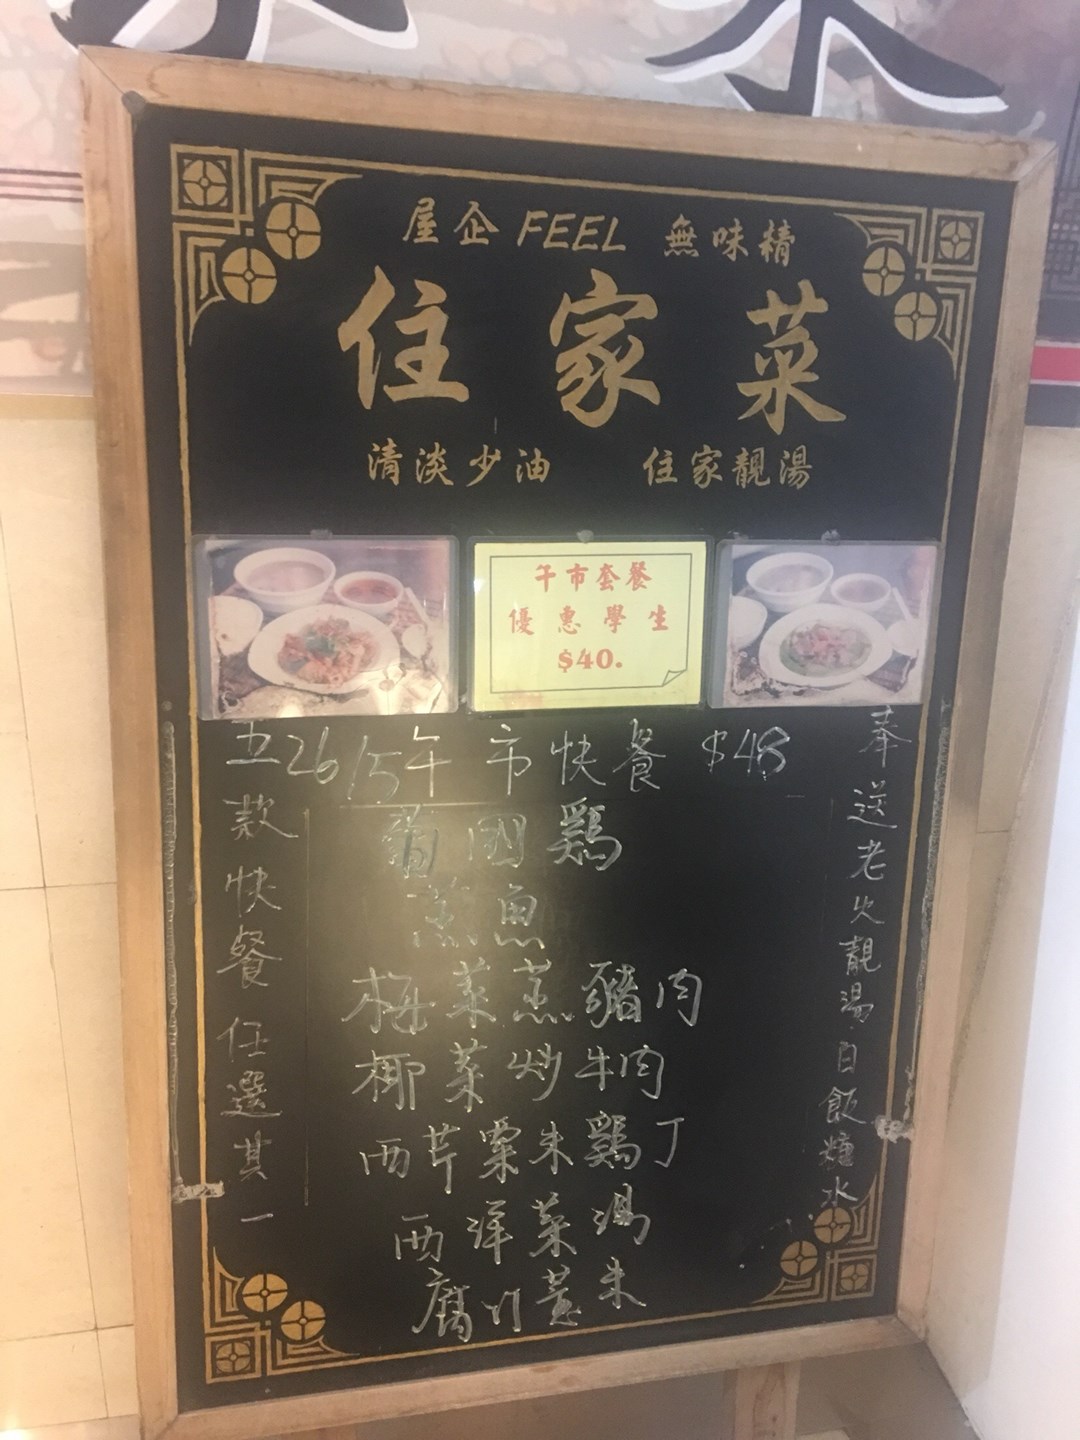 屋企 FEEL 無味精
住家菜
清淡少油 住家靚湯
午市套餐
優惠學生
$40.
26/5午市快餐 $48
葡國鷄
蒸魚
梅菜蒸豬肉
椰菜炒牛肉
西芹粟米鷄丁
西洋菜湯
腐竹薏米
五款快餐任選其一
奉送老火靚湯.白飯糖水